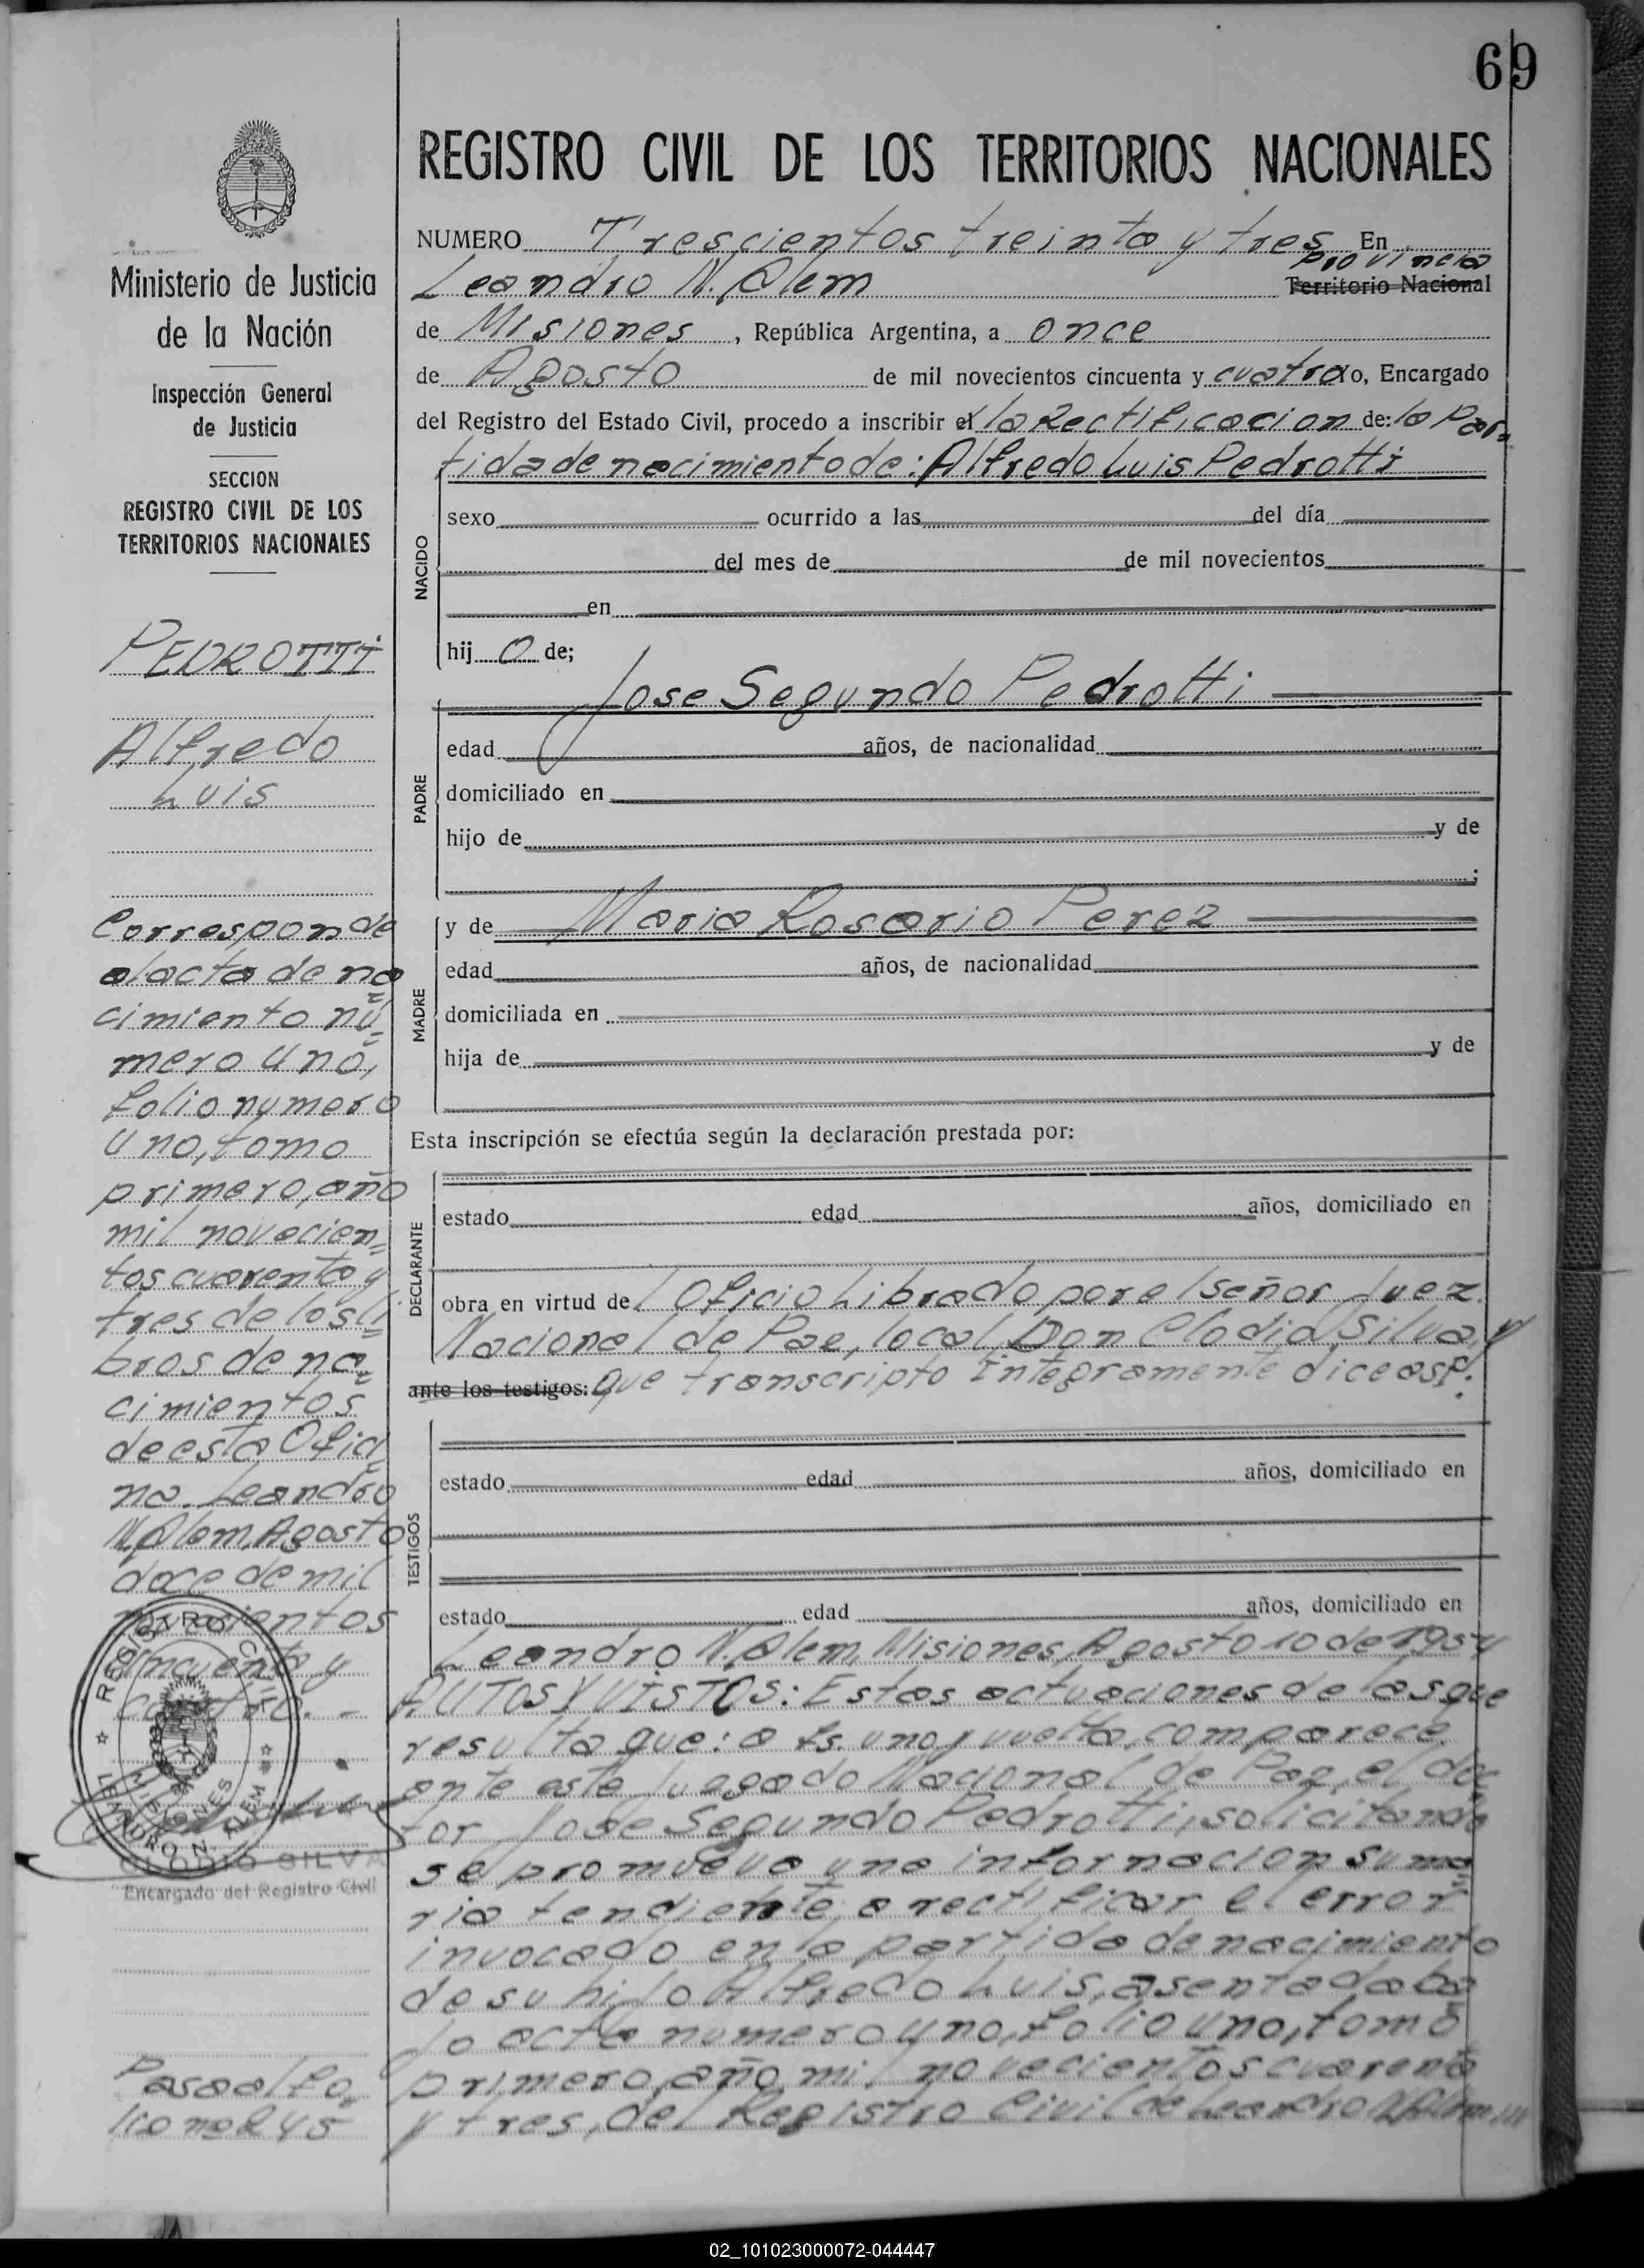 69
REGISTRO CIVIL DE LOS TERRITORIOS NACIONALES
Ministerio de Justicia
de la Nación
Inspección General
de Justicia
SECCION
REGISTRO CIVIL DE LOS
TERRITORIOS NACIONALES
PEDROTTI
Alfredo
Luis
Corresponde
al acta de na=
cimiento nú=
mero uno,
folio numero
uno, tomo
primero, año
mil novecien=
tos cuarenta y
tres de los li=
bros de na=
cimientos
de esta Ofici=
na. Leandro
N. Alem, Agosto
doce de mil
novecientos
cincuenta y
cuatro. -
REGISTRO CIVIL
MISIONES
LEANDRO N. ALEM
CLODIO SILVA
Encargado del Registro Civil
Pasa al fo=
lio no 245
NUMERO Trescientos treinta y tres En
provincia
Leandro N. Alem Territorio Nacional
de Misiones, República Argentina, a once
de Agosto de mil novecientos cincuenta y cuatro yo, Encargado
del Registro del Estado Civil, procedo a inscribir el la Rectificacion de: la Par=
tida de nacimiento de: Alfredo Luis Pedrotti
NACIDO
sexo ocurrido a las del día
del mes de de mil novecientos
en
hij o de;
PADRE
Jose Segundo Pedrotti
edad años, de nacionalidad
domiciliado en
hijo de y de
;
MADRE
y de Maria Rosario Perez
edad años, de nacionalidad
domiciliada en
hija de y de
Esta inscripción se efectúa según la declaración prestada por:
DECLARANTE
estado edad años, domiciliado en
obra en virtud del Oficio Librado por el señor Juez
Nacional de Paz, local Don Clodio Silva, y
ante los testigos: que transcripto Integramente dice así:
TESTIGOS
estado edad años, domiciliado en
estado edad años, domiciliado en
Leandro N. Alem, Misiones, Agosto 10 de 1954
AUTOS Y VISTOS: Estas actuaciones de las que
resulta que: a fs. uno y vuelta, comparece
ante este Juzgado Nacional de Paz, el doc
tor Jose Segundo Pedrotti, solicitando
se promueva una informacion suma=
ria tendiente a rectificar el error
invocado en la partida de nacimiento
de su hijo Alfredo Luis, asentada ba
jo acta numero uno, folio uno, tomo
primero, año mil novecientos cuarenta
y tres, del Registro Civil de Leandro N. Alem
02_101023000072-044447